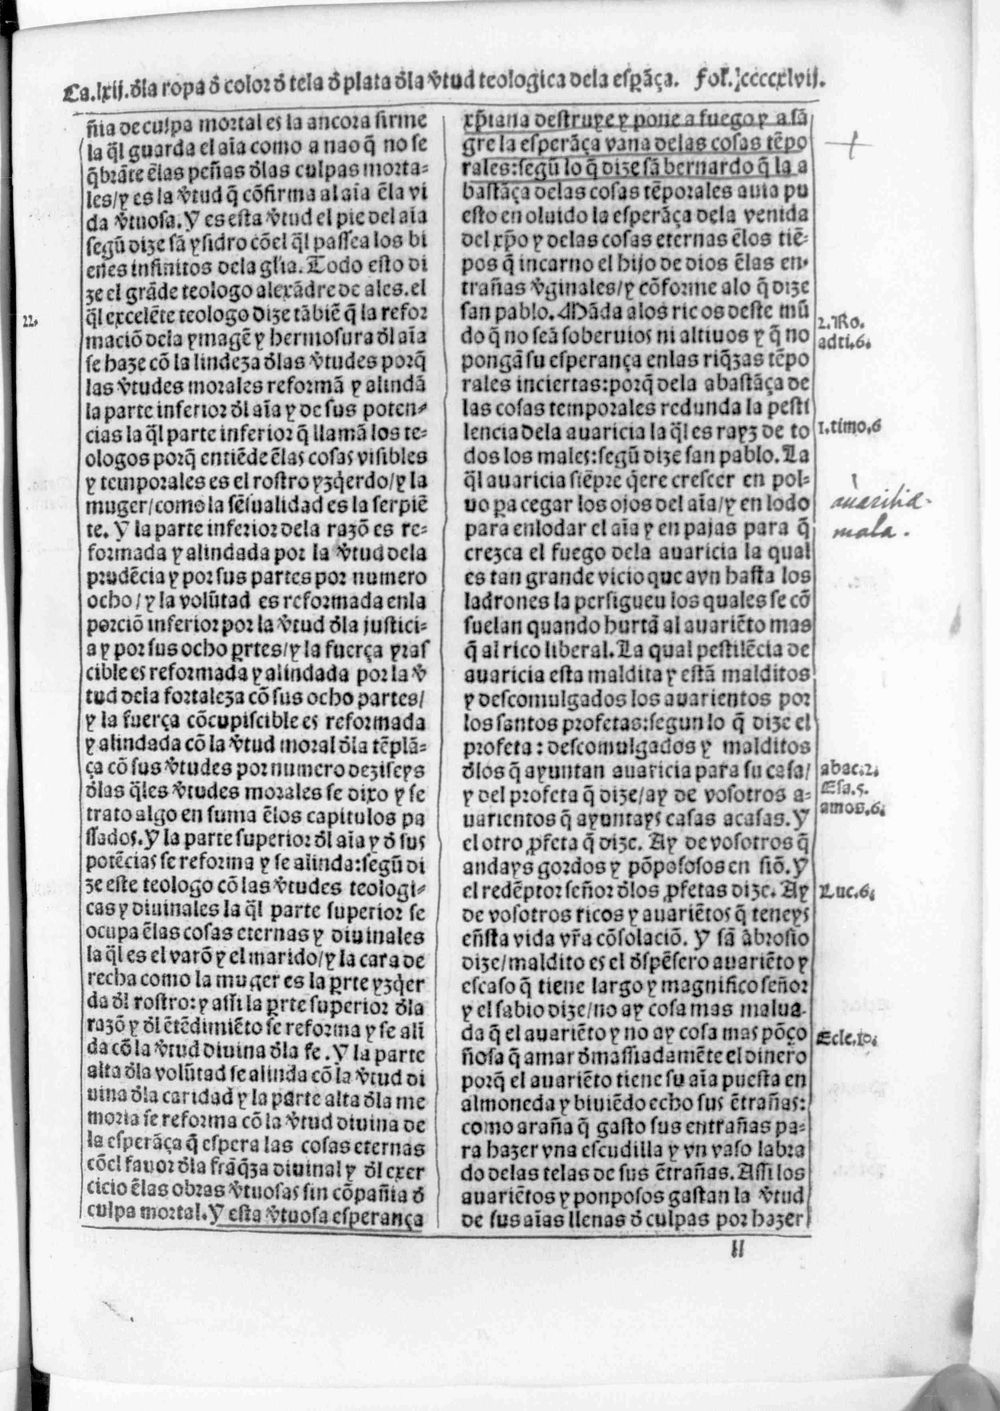 Ca.lxij.đla ropa đ color đ tela đ plata đla v̄tud teologica dela esꝑãça. Fol.ccccxlvij.
ñia de culpa mortal es la ancora firme
la q̃l guarda el aĩa como a nao q̃ no se
q̃brãte ẽlas peñas đlas culpas morta-
les/y es la v̄tud q̃ cõfirma al aĩa ẽla vi
da v̄tuosa. Y es esta v̄tud el pie del aĩa
segũ dize sã ysidro cõel q̃l passea los bi
enes infinitos dela gl̃ia. Todo esto di
ze el grãde teologo alexãdre de ales. el
22.
q̃l excelẽte teologo dize tãbiẽ q̃ la refor
maciõ dela ymagẽ y hermosura đl aĩa
se haze cõ la lindeza đlas v̄tudes porq̃
las v̄tudes morales reformã y alindã
la parte inferior đl aĩa y de sus poten-
cias la q̃l parte inferior q̃ llamã los te-
ologos porq̃ entiẽde ẽlas cosas visibles
y temporales es el rostro yzq̃erdo/y la
muger/como la sẽsualidad es la serpiẽ
te. Y la parte inferior dela razõ es re-
formada y alindada por la v̄tud dela
prudẽcia y por sus partes por numero
ocho/y la volũtad es reformada enla
porciõ inferior por la v̄tud đla justici-
a y por sus ocho ꝑrtes/y la fuerça yras
cible es reformada y alindada por la v̄
tud dela fortaleza cõ sus ocho partes/
y la fuerça cõcupiscible es reformada
y alindada cõ la v̄tud moral đla tẽplã-
ça cõ sus v̄tudes por numero deziseys
đlas q̃les v̄tudes morales se dixo y se
trato algo en suma ẽlos capitulos pa
ssados. Y la parte superior đl aĩa y đ sus
potẽcias se reforma y se alinda: segũ di
ze este teologo cõ las v̄tudes teologi-
cas y diuinales la q̃l parte superior se
ocupa ẽlas cosas eternas y diuinales
la q̃l es el varõ y el marido/y la cara de
recha como la muger es la ꝑrte yzq̃er
da đl rostro: y assi la ꝑrte superior đla
razõ y đl ẽtẽdimiẽto se reforma y se alĩ
da cõ la v̄tud diuina đla fe. Y la parte
alta đla volũtad se alinda cõ la v̄tud di
uina đla caridad y la parte alta đla me
moria se reforma cõ la v̄tud diuina de
la esperãça q̃ espera las cosas eternas
cõel fauor đla frãq̃za diuinal y đl exer
cicio ẽlas obras v̄tuosas sin cõpañia đ
culpa mortal. Y esta v̄tuosa esperança
xp̃iana destruye y pone a fuego y a sã
gre la esperãça vana delas cosas tẽpo
rales: segũ lo q̃ dize sã bernardo q̃ la a
bastãça delas cosas tẽporales auia pu
esto en oluido la esperãça dela venida
del xp̃o y delas cosas eternas ẽlos tiẽ-
pos q̃ incarno el hijo de dios ẽlas en-
trañas v̄ginales/y cõforme alo q̃ dize
san pablo. Mãda alos ricos deste mũ
do q̃ no seã soberuios ni altiuos y q̃ no
pongã su esperança enlas riq̃zas tẽpo
rales inciertas: porq̃ dela abastãça de
las cosas temporales redunda la pesti
lencia dela auaricia la q̃l es rayz de to
dos los males: segũ dize san pablo. La
q̃l auaricia siẽpre q̃ere crescer en pol-
uo ꝑa cegar los ojos del aĩa/y en lodo
para enlodar el aĩa y en pajas para q̃
crezca el fuego dela auaricia la qual
es tan grande vicio que avn hasta los
ladrones la persigueu los quales se cõ
suelan quando hurtã al auariẽto mas
q̃ al rico liberal. La qual pestilẽcia de
auaricia esta maldita y estã malditos
y descomulgados los auarientos por
los santos profetas: segun lo q̃ dize el
profeta: descomulgados y malditos
đlos q̃ ayuntan auaricia para su casa/
y del profeta q̃ dize/ay de vosotros a-
uarientos q̃ ayuntays casas a casas. Y
el otro ꝓfeta q̃ dize. Ay de vosotros q̃
andays gordos y põposos en siõ. Y
el redẽptor señor đlos ꝓfetas dize. Ay
de vosotros ricos y auariẽtos q̃ teneys
eñsta vida vr̃a cõsolaciõ. Y sã ãbrosio
dize/maldito es el đspẽsero auariẽto y
escaso q̃ tiene largo y magnifico señor
y el sabio dize/no ay cosa mas malua-
da q̃ el auariẽto y no ay cosa mas põço
ñosa q̃ amar đmassiadamẽte el dinero
porq̃ el auariẽto tiene su aĩa puesta en
almoneda y biuiẽdo echo sus ẽtrañas:
como araña q̃ gasto sus entrañas pa-
ra hazer vna escudilla y vn vaso labra
do delas telas de sus ẽtrañas. Assi los
auariẽtos y ponposos gastan la v̄tud
de sus aĩas llenas đ culpas por hazer
2. Ro.
adti.6.
1. timo.6
auaritia
mala.
abac.2.
Esa.5.
amos.6.
Luc.6.
Ecle.10.
ll